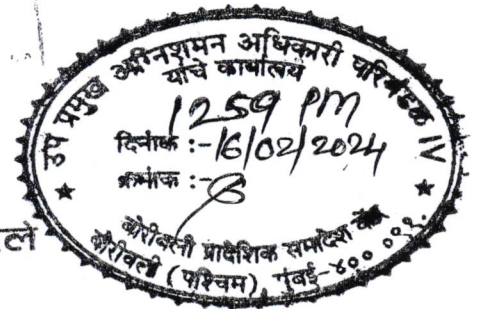 उप प्रमुख अग्निशमन अधिकारी परिमंडळ IV
यांचे कार्यालय
1259 PM
दिनांक :-16/02/2024
क्रमांक :-
बोरीवली प्रादेशिक समादेश केंद्र
बोरीवली (पश्चिम), मुंबई-४०० ०९१.